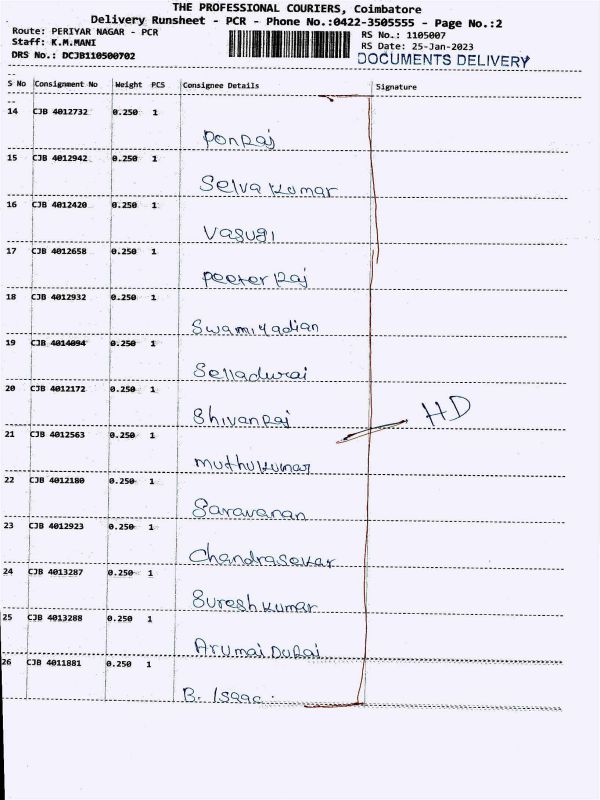 THE PROFESSIONAL COURIERS, Coimbatore
Delivery Runsheet - PCR - Phone No.:0422-3505555 - Page No.:2
Route: PERIYAR NAGAR - PCR
Staff: K.M.MANI
DRS No.: DCJB110500702
RS No.: 1105007
RS Date: 25-Jan-2023
DOCUMENTS DELIVERY
S No Consignment No Weight PCS Consignee Details Signature
14 CJB 4012732 0.250 1
Ponraj
15 CJB 4012942 0.250 1
Selva Kumar
16 CJB 4012420 0.250 1
Vasugi
17 CJB 4012658 0.250 1
Peeter Raj
18 CJB 4012932 0.250 1
Swamiyadian
19 CJB 4014094 0.250 1
Selladurai
20 CJB 4012172 0.250 1
Shivanraj
HD
21 CJB 4012563 0.250 1
muthukumar
22 CJB 4012180 0.250 1
Saravanan
23 CJB 4012923 0.250 1
Chandrasekar
24 CJB 4013287 0.250 1
Sureshkumar
25 CJB 4013288 0.250 1
Arumai Durai
26 CJB 4011881 0.250 1
B. Isaac.